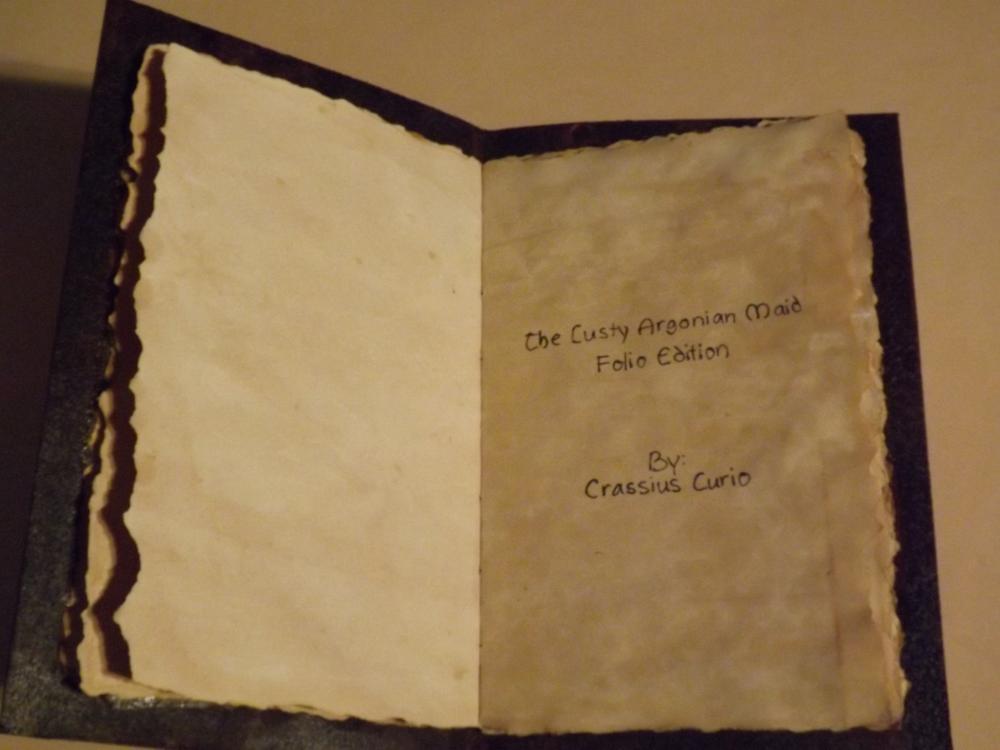 The Lusty Argonian Maid
Folio Edition
By:
Crassius Curio